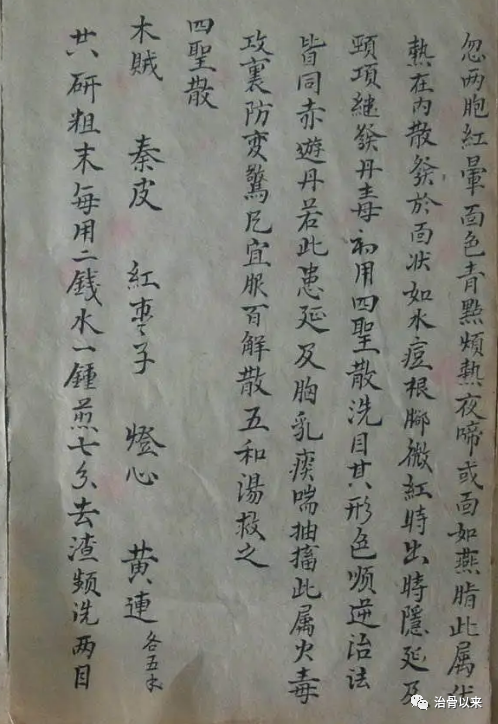 忽两胞紅暈面色青黯煩熱夜啼或面如燕脂此属伏
熱在内散發於面状如水痘根腳微紅時出時隱延及
頸項継發丹毒初用四聖散洗目其形色順逆治法
皆同赤遊丹若此患延及胸乳痰喘抽搐此属火毒
攻裏防变驚宜服百解散五和湯救之
四聖散
木賊 秦皮 紅枣子 燈心 黄連 各五
共研粗末每用二錢水一鍾煎七分去渣频洗两目
治骨以来